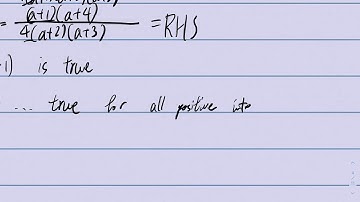 = (a+1)(a+4) / 4(a+2)(a+3) = RHS
+1) is true
... true for all positive ints